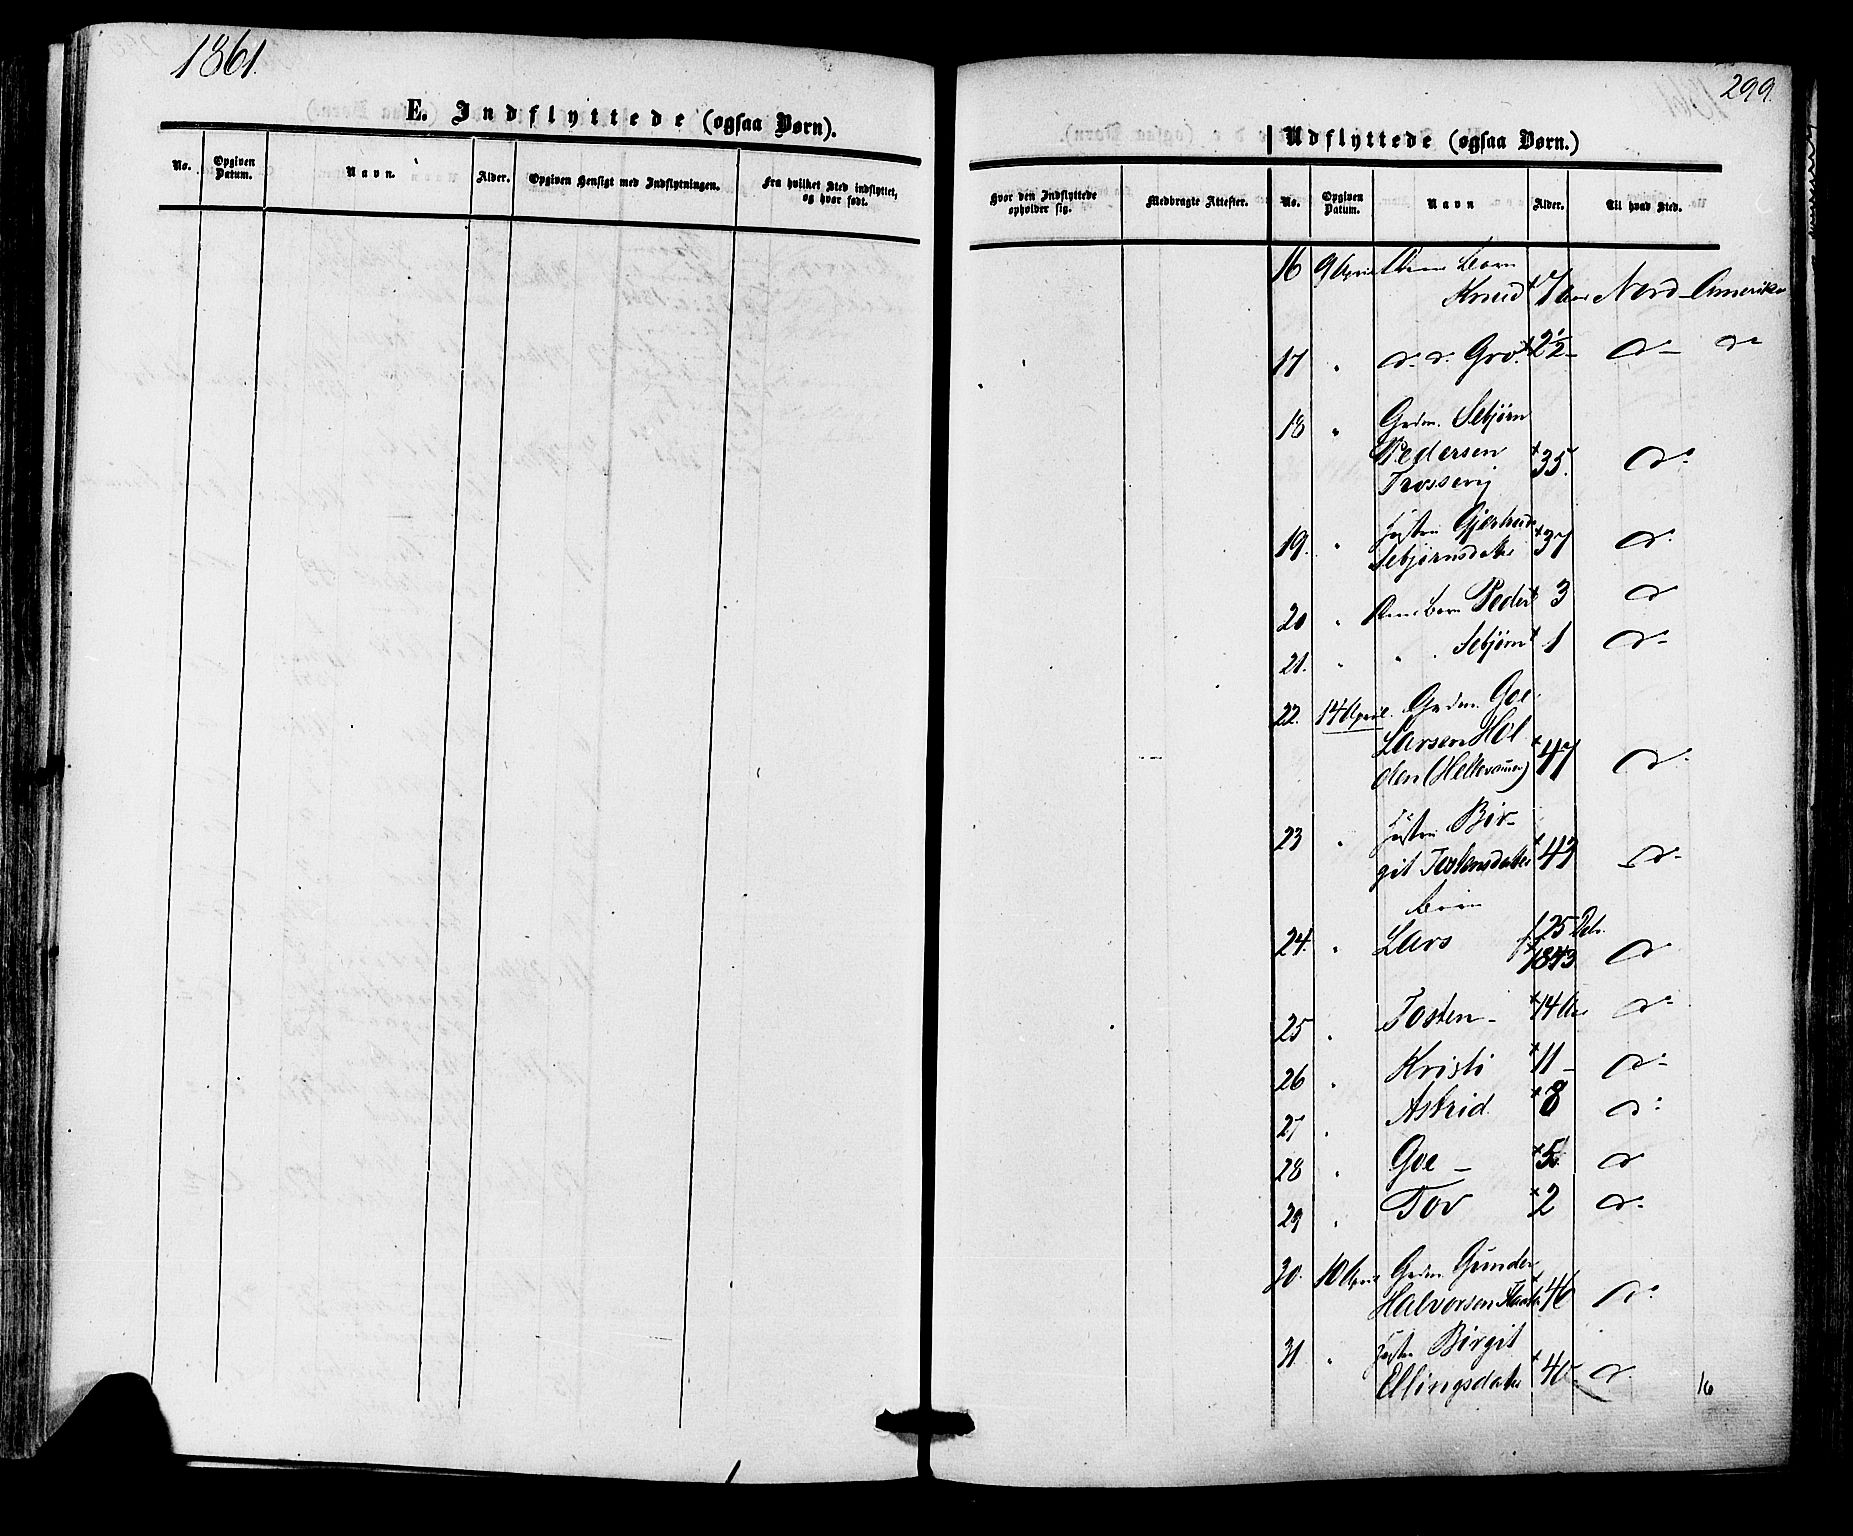 1861.
E. Indflyttede (ogsaa Børn).
No.
Opgiven Datum.
Navn.
Alder.
Opgiven Hensigt med Indflytningen.
Fra hvilket Sted indflyttet, og hvor født.
299.
Udflyttede (ogsaa Børn.)
Hvor den Indflyttede opholder sig.
Medbragte Attester.
No.
Opgiven Datum.
Navn
Alder.
Til hvad Sted.
16 9 April Børn
Knud 7 Nord-Amerika
17 " d. d. Gro. 2½ - do do
18 " Grdm. Sebjørn
Pedersen 35. do
19. " Gjertrud 37 do
Sebjørnsdatter
20 " Børn Peder 3 do
21. " " Sebjørn 1 do
22. 14 April. Grdm. Goe
Larsen Hol
den ( 47 do
23 " Bir-
git Tostensdatter 43 do
Børn
24. " Lars f. 25 Dcbr. 1843 do
25 " Tosten - 14 Aar do
26 " Kristi 11 - do
27 " Astrid 8 do
28 " Goe - 5 do
29 " Tov 2 do
30. 10 April Grdm. Gunder
Halvorsen 46 do
31 " Birgit
Ellingsdatter 40 do
16